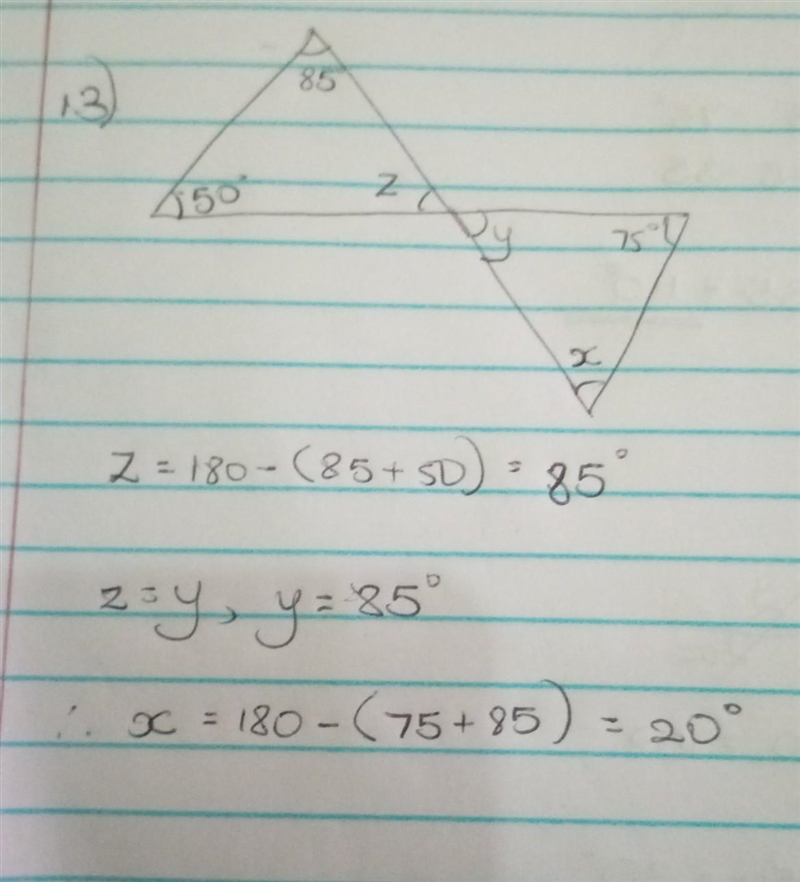 13)
85
50°
z
y
75°
x
z = 180 - (85 + 50) = 85°
z = y, y = 85°
∴ x = 180 - (75 + 85) = 20°